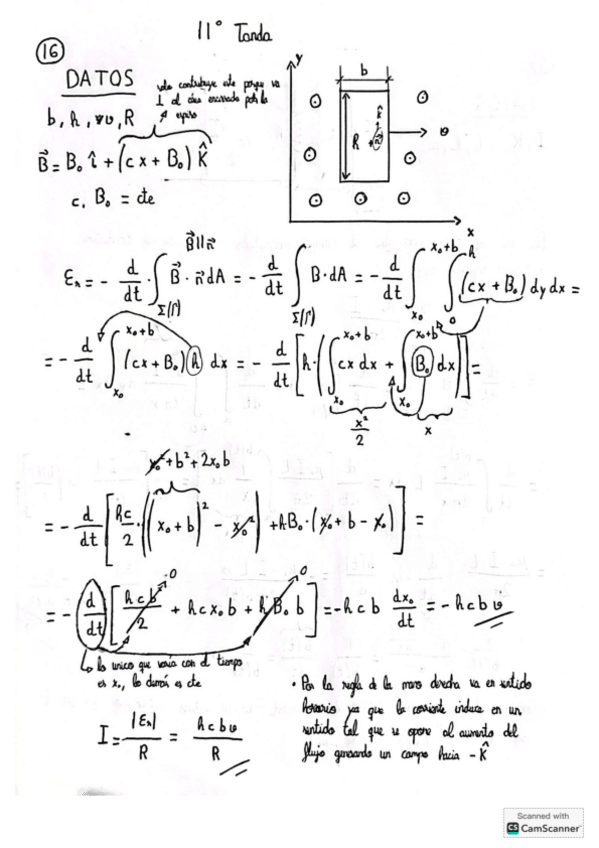 11° Tanda
16
DATOS
solo contribuye este porque va
⊥ al área encerrada por la
espira
b, h, v, R
B⃗ = B₀ î + (cx + B₀) K̂
c, B₀ = cte
y
b
h
k̂
n̂
v
x
B⃗ || n⃗
εₙ = - d/dt ∫_Σ(Γ) B⃗ · n⃗ dA = - d/dt ∫_Σ(Γ) B · dA = - d/dt ∫_x₀^x₀+b ∫_0^h (cx + B₀) dy dx =
= - d/dt ∫_x₀^x₀+b (cx + B₀) h dx = - d/dt [h · (∫_x₀^x₀+b cx dx + ∫_x₀^x₀+b B₀ dx)] =
x²/2
x
x₀² + b² + 2x₀b
= - d/dt [hc/2 · ((x₀ + b)² - x₀²) + h·B₀ · (x₀ + b - x₀)] =
= - d/dt [hcb/2 + hcx₀b + hB₀b] = -hcb dx₀/dt = -hcbv
0
0
lo unico que varía con el tiempo
es x₀, lo demás es cte
I = |εₙ|/R = hcbv/R
• Por la regla de la mano derecha va en sentido
horario ya que la corriente induce en un
sentido tal que se opone al aumento del
flujo generando un campo hacia -K̂
Scanned with
CS CamScanner